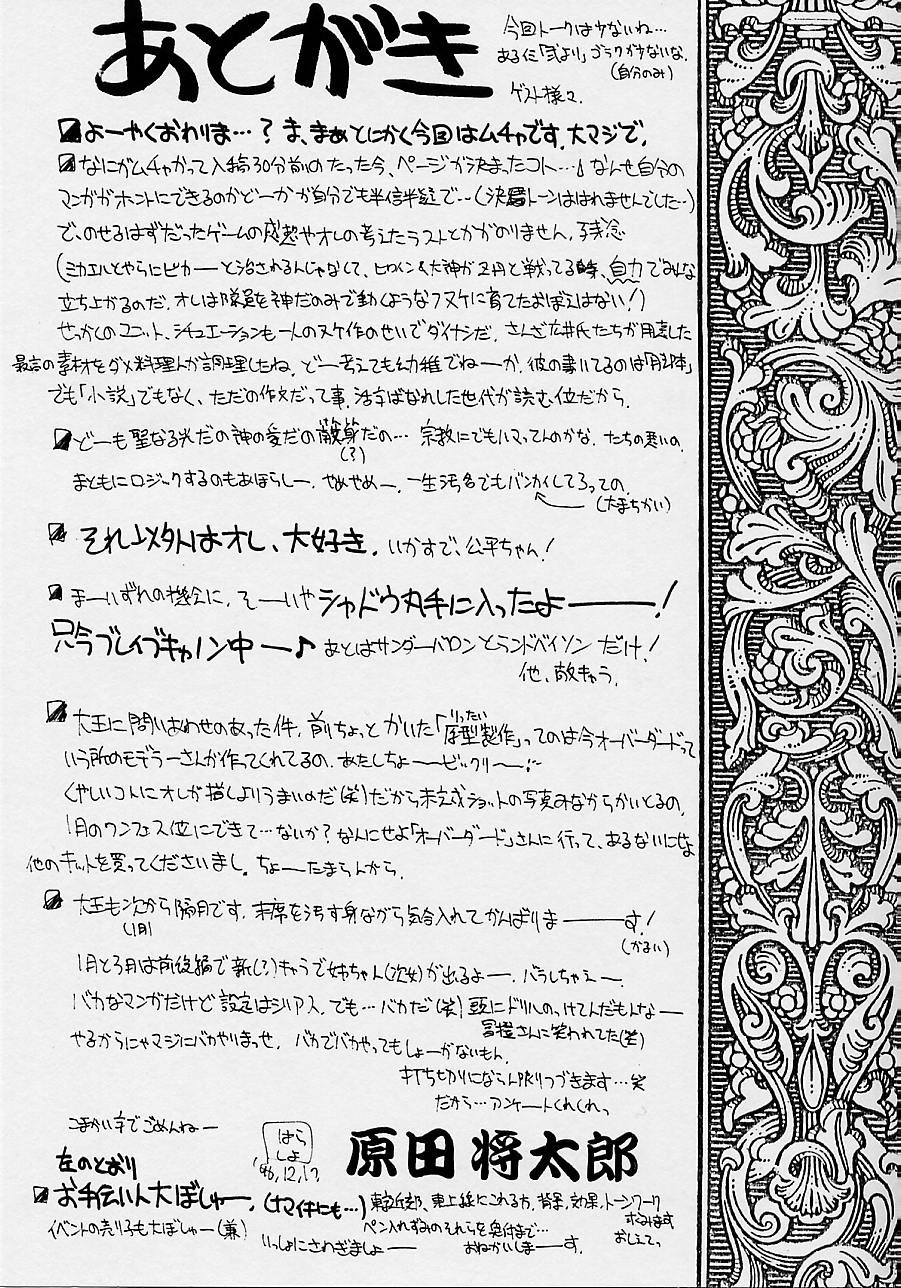 あとがき
今回トークは少ないね…
あるに「弐より」ゴラクが少ないな.
(自分のみ)
ゲスト様々.
よーやくおわりま…? ま、まぁとにかく今回はムチャです.大マジで.
なにがムチャかって入稿30分前のたった今、ページが決まったコト…♩なんせ自分の
マンガがホントにできるのかどーかが自分でも半信半疑で…(決露トーンははれませんでした…)
で、のせるはずだったゲームの感想やオレの考えたラストとかがのりません.残念
(ミカエルとやらにピカーーと治されるんじゃなくて、ヒロイン&大神が正円と戦ってる時、自力でみんな
立ち上がるのだ.オレは隊員を神だのみで動くようなフヌケに育てたおぼえはない!)
せっかくのユニット、シチュエーションも一人のヌケ作のせいでダイナシだ.さんざ 井氏たちが用意した
最高の素材をダメ料理人が調理したね.どー考えても幼稚でねーか.彼の書いてるのは「脚本」
でも「小説」でもなく、ただの作文だって事.活字ばなれした世代が読む位だから.
どーも聖なる光だの神の愛だの だの… 宗教にでもハマってんのかな.たちの悪いの.
(?)
まともにロジックするのもあほらしー.やめやめー.一生汚名でもバンカイしてろっての.
(大まちがい)
それ以外はオレ、大好き.いかすで、公平ちゃん!
まーいずれの機会に、そーいやシャドウ丸手に入ったよーーー!
只今ブレイブキャノン中ー♪ あとはサンダーバロンとランドバイソン だけ!
他、敵キャラ.
大王に問いあわせのあった件.前ちょっとかいた「原型製作」ってのは今オーバーダードって
りったい
いう所のモデラーさんが作ってくれてるの.あたしちょーービックリー
くやしいコトにオレが描くよりうまいのだ(笑)だから未完成ショットの写真みながらかいとるの.
1月のワンフェス位にできて…ないか?なんにせよ「オーバーダード」さんに行って、あるないにせよ
他のキットを買ってくださいまし.ちょーたまらんから.
大王も次から隔月です.末席を汚す身ながら気合入れてがんばりまーーす!
(1月)
(かるい)
1月と3月は前後編で新(?)キャラで姉ちゃん(次女)が出るよー.バラしちゃえー
バカなマンガだけど設定はシリアス.でも…バカだ(笑)頭にドリルのっけてんだもんなー
冨樫さんに笑われてた(笑)
やるからにゃマジにバカやりまっせ.バカでバカやってもしょーがないもん.
打ち切りにならん限りつづきます…笑
だから…アンケートくれくれっ
こまかい字でごめんねー
はら
しょ
'96.12.17
原田 将太郎
左のとおり
お手伝い人大ぼしゅー.(ナマイキにも…)東京近郊、東上線にこれる方.背景、効果、トーンワーク
できます
イベントの売り子も大ぼしゅー(兼)
ペン入れずみのそれらを受付まで…
おしえてっ
いっしょにさわぎましょーー
おねがいしまーす.